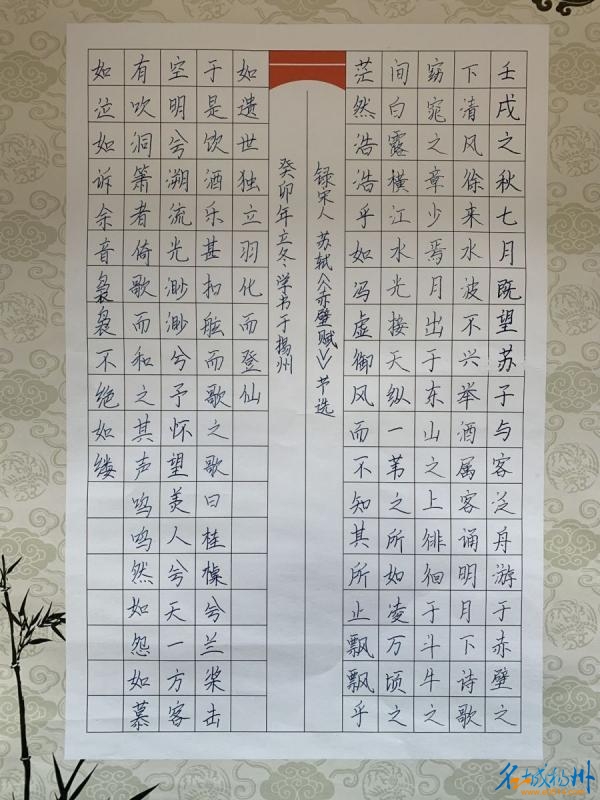 壬戌之秋七月既望苏子与客泛舟游于赤壁之
下清风徐来水波不兴举酒属客诵明月下诗歌
窈窕之章少焉月出于东山之上徘徊于斗牛之
间白露横江水光接天纵一苇之所如凌万顷之
茫然浩浩乎如冯虚御风而不知其所止飘飘乎
録宋人 苏轼《赤壁赋》节选
癸卯年立冬、学书于扬州
如遗世独立羽化而登仙
于是饮酒乐甚扣舷而歌之歌曰桂棹兮兰桨击
空明兮溯流光渺渺兮予怀望美人兮天一方客
有吹洞箫者倚歌而和之其声呜呜然如怨如慕
如泣如诉余音袅袅不绝如缕
名城扬州